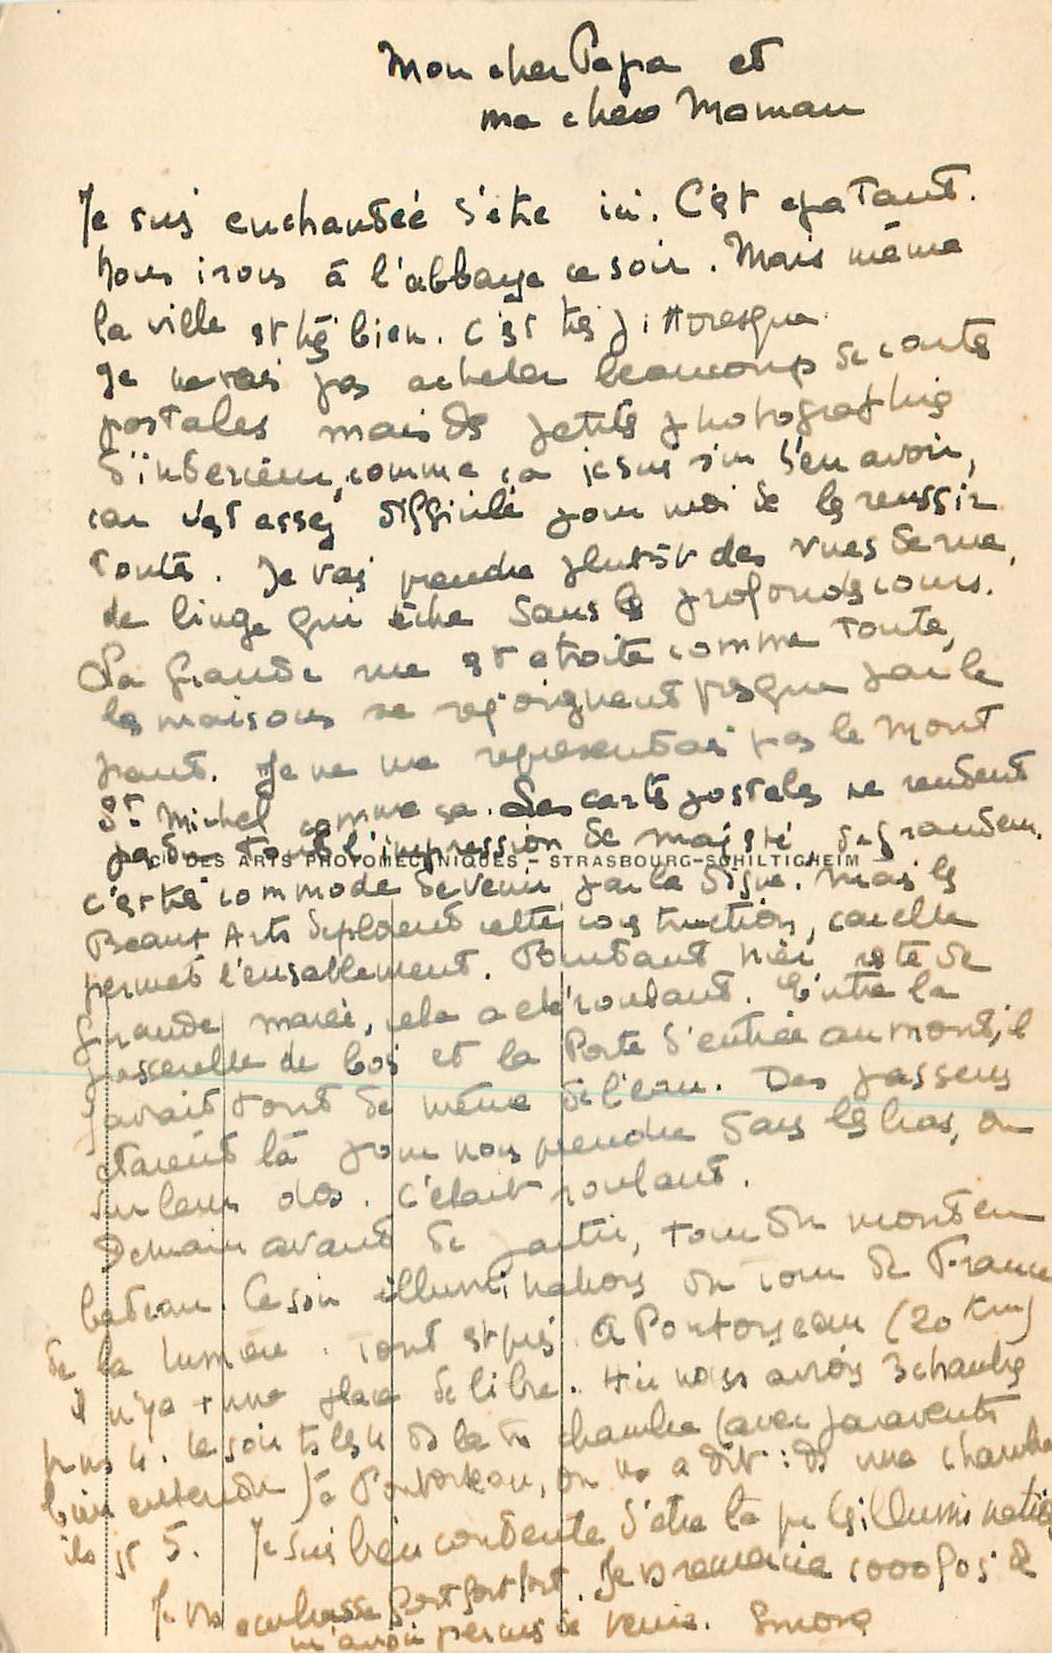 Mon cher Papa et
ma chère Maman
Je suis enchantéé d'être ici. C'est epatant.
Nous irons à l'abbaye ce soir. Mais même
la ville est très bien. C'est très pittoresque.
Je ne vais pas acheter beaucoup de cartes
postales mais des petites photographies
d'interieur, comme ça je suis sûr d'en avoir,
car c'est assez difficile pour moi de les reussir
toutes. Je vais prendre plutôt des vues de rue,
de linge qui sèche dans les profondes cours.
La Grande rue est etroite comme toute,
les maisons se rejoignent presque par le
haut. Je ne me representais pas le Mont
St Michel comme ça. Les cartes postales ne rendent
pas du tout l'impression de majesté de grandeur.
CIE DES ARTS PHOTOMECANIQUES - STRASBOURG-SCHILTIGHEIM
C'est très commode de venir par la digue. Mais les
Beaux Arts deplorent cette construction, car elle
permet l'ensablement. Pourtant hier, reste de
grande marée, cela a été roulant. Entre la
passerelle de bois et la Porte d'entrée au mont, il
y avait tout de même de l'eau. Des passeurs
etaient là pour nous prendre dans les bras, ou
sur leur dos. C'était roulant.
Demain avant de partir, tour du mont en
bateau. Ce soir illuminations du Tour de France
de la lumière. Tout est pris. A Pontorseau (20 Km)
il n'y a + une place de libre. Hier nous avions 3 chambres
pour 4. Ce soir ts les 4 ds la m chambre (avec paravents
bien entendu) à Pontorseau, on ns a dit : ds une chambre
ils st 5. Je suis bien contente d'être là pr les illuminations
Je vs embrasse fort fort fort. Je vs remercie 1000 fois de
m'avoir permis de venir. Simone